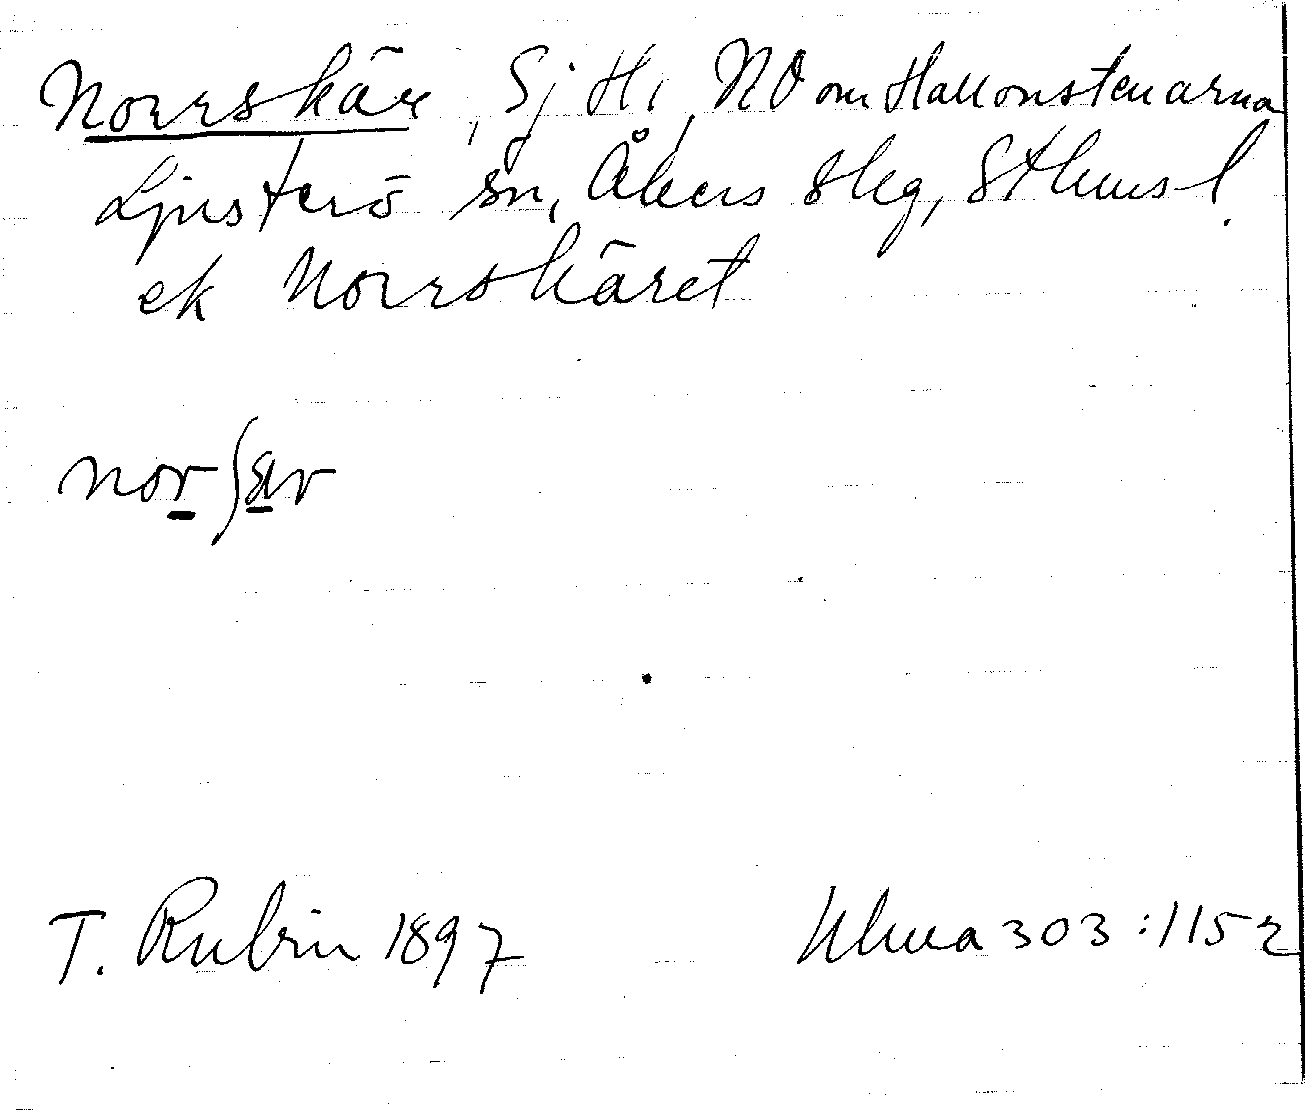 Norrskär, Sj H, NO om Hallonstenarna
Ljusterö sn, Åkers skg, Sthms l.
ek Norrskäret
norʃær
T. Rubin 1897 Uhma 303:1152